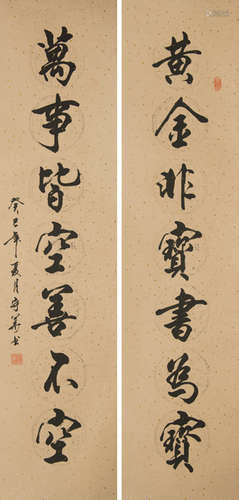 黄金非寶書為寶
萬事皆空善不空
癸巳年夏月守義書